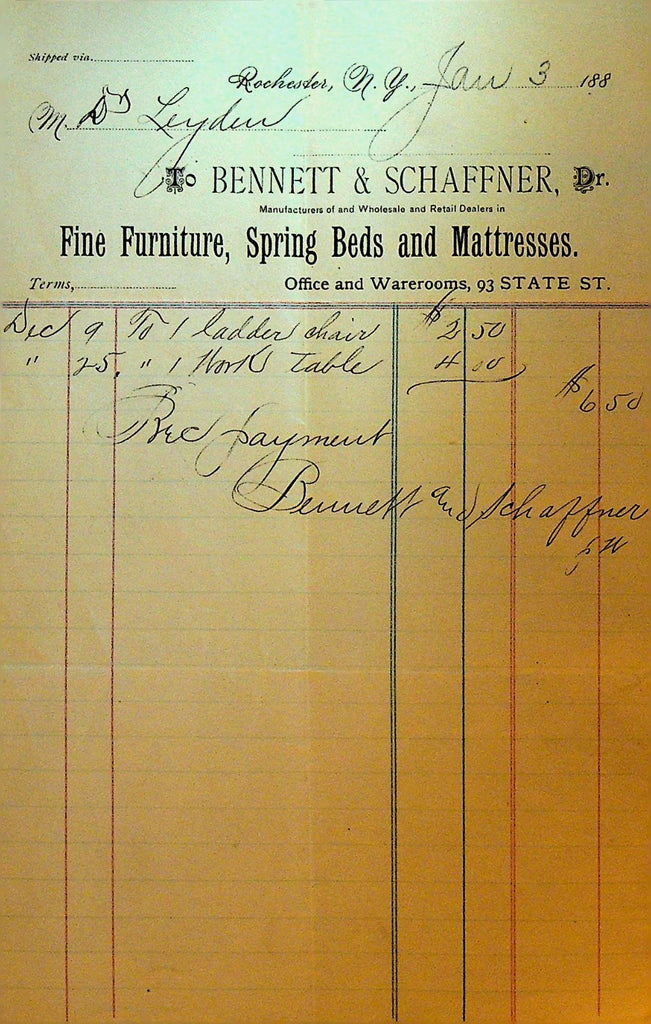 Shipped via
Rochester, N. Y., Jan 3 188
M. Dr Leyden
To BENNETT & SCHAFFNER, Dr.
Manufacturers of and Wholesale and Retail Dealers in
Fine Furniture, Spring Beds and Mattresses.
Terms, Office and Warerooms, 93 STATE ST.
Dec 9 To 1 ladder chair $2 50
" 25. " 1 Work table 4 00
$6 50
Rec payment
Bennett and Schaffner